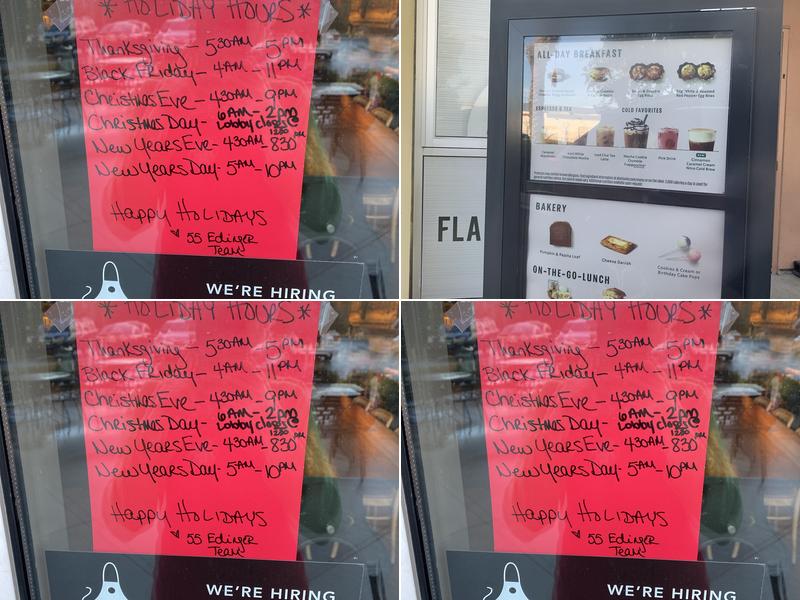 * HOLIDAY HOURS *
Thanksgiving - 530AM - 5PM
Black Friday - 4AM - 11PM
Christmas Eve - 430AM - 9PM
Christmas Day - 6AM - 2pm
Lobby closes @
1230 pm
New Years Eve - 430AM - 830
New Years Day - 5AM - 10PM
Happy HOLIDAYS
55 Edinger
Team
WE'RE HIRING
ALL-DAY BREAKFAST
ESPRESSO & TEA
COLD FAVORITES
Iced Chai Tea
Latte
Mocha Cookie
Crumble
Frappuccino
Pink Drink
Cinnamon
Caramel Cream
Nitro Cold Brew
FLA
BAKERY
Pumpkin & Pepita Loaf
Cheese Danish
Cookies & Cream or
Birthday Cake Pops
ON-THE-GO-LUNCH
* HOLIDAY HOURS *
Thanksgiving - 530AM - 5PM
Black Friday - 4AM - 11PM
Christmas Eve - 430AM - 9PM
Christmas Day - 6AM - 2pm
Lobby closes @
1230 pm
New Years Eve - 430AM - 830
New Years Day - 5AM - 10PM
Happy HOLIDAYS
55 Edinger
Team
WE'RE HIRING
* HOLIDAY HOURS *
Thanksgiving - 530AM - 5PM
Black Friday - 4AM - 11PM
Christmas Eve - 430AM - 9PM
Christmas Day - 6AM - 2pm
Lobby closes @
1230 pm
New Years Eve - 430AM - 830
New Years Day - 5AM - 10PM
Happy HOLIDAYS
55 Edinger
Team
WE'RE HIRING